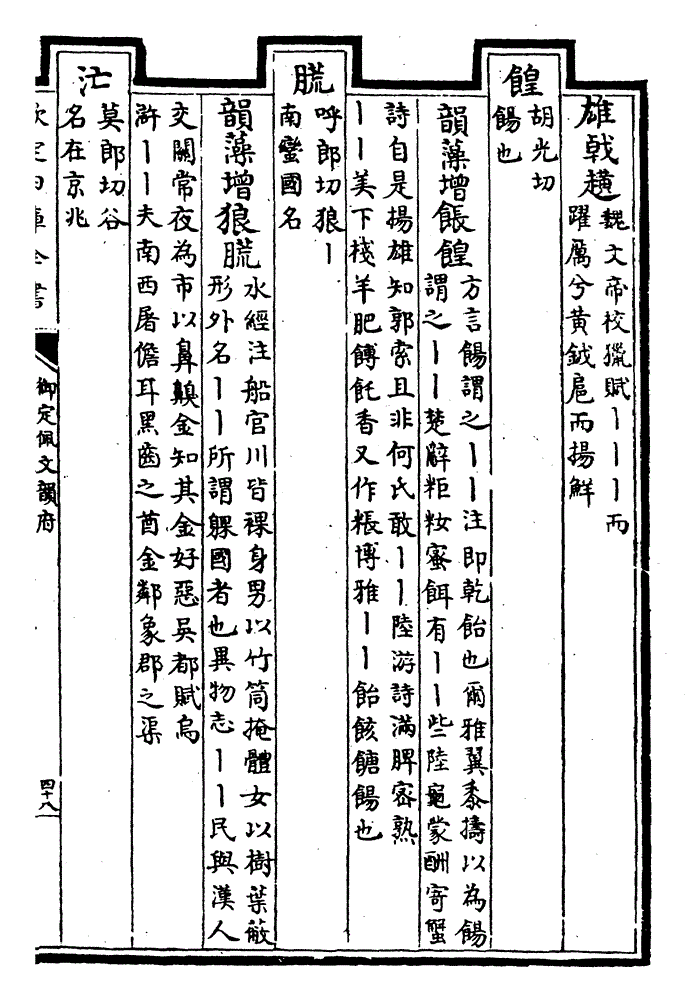 雄戟趪魏文帝校獵賦丨丨丨而
躍厲兮黃鉞扈而揚鮮
餭
胡光切
餳也
韻藻增餦餭方言餳謂之丨丨注即乾飴也爾雅翼黍擣以為餳
謂之丨丨楚辭粔籹蜜餌有丨丨些陸龜蒙酬寄蟹
詩自是揚雄知郭索且非何氏敢丨丨陸游詩滿脾密熟
丨丨美下棧羊肥餺飥香又作粻博雅丨丨飴䬵餹餳也
䐠
呼郎切狼丨
南蠻國名
韻藻增狼䐠水經注船官川皆裸身男以竹筒掩體女以樹葉蔽
形外名丨丨所謂躶國者也異物志丨丨民與漢人
交關常夜為市以鼻齅金知其金好惡吳都賦烏
滸丨丨夫南西屠儋耳黑齒之酋金鄰象郡之渠
汒
莫郎切谷
名在京兆
欽定四庫全書
御定佩文韻府
四十八